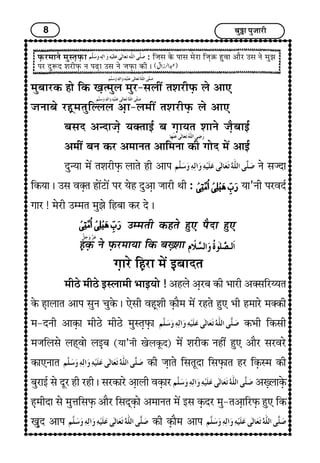 8 बुड्ढा पुजारी
फ़रमाने मुस्तफ़ा صَلَّى اللهُ تَعَالٰى عَلَيْهِ وَاٰلِهٖ وَسَلَّم : जिस के पास मेरा ज़िक्र हुवा और उस ने मुझ
पर दुरूद शरीफ़ न पढ़ा उस ने जफ़ा की ।
صَلَّى اللهُ تَعَالٰى عَلَيْهِ وَاٰلِهٖ وَسَلَّم
मुबारक हो कि ख़त्मुल मुर-सलीं तशरीफ़ ले आए
صَلَّى اللهُ تَعَالٰى عَلَيْهِ وَاٰلِهٖ وَسَلَّم
जनाबे रह़्मतुल्लिल आ़-लमीं तशरीफ़ ले आए
बसद अन्दाज़े यक्ताई ब ग़ायत शाने ज़ैबाई
رَضِىَ اللهُ تَعَالٰى عَنْهَا
अमीं बन कर अमानत आमिना की गोद में आई
दुन्या में तशरीफ़ लाते ही आप صَلَّى اللهُ تَعَالٰى عَلَيْهِ وَاٰلِهٖ وَسَلَّم ने सज्दा
किया । उस वक़्त होंटों पर येह दुआ़ जारी थी : رَبِّ هَبْلِىْ اُمَّتِىْ या'नी परवर्द
गार ! मेरी उम्मत मुझे हिबा कर दे ।
رَبِّ هَبْلِىْ اُمَّتِىْ उम्मती कहते हुए पैदा हुए
ह़क़ ने फ़रमाया कि बख़्शा اَلصَّلٰوةُ وَالسَّلَام
ग़ारे ह़िरा में इ़बादत
मीठे मीठे इस्लामी भाइयो ! अहले अ़रब की भारी अक्सरिय्यत
के हालात आप सुन चुके । ऐसी वह़्शी क़ौम में रहते हुए भी हमारे मक्की
म-दनी आक़ा मीठे मीठे मुस्तफ़ा صَلَّى اللهُ تَعَالٰى عَلَيْهِ وَاٰلِهٖ وَسَلَّم कभी किसी
मजलिसे लह्वो लइ़ब (या'नी खेलकूद) में शरीक नहीं हुए और सरवरे
काएनात صَلَّى اللهُ تَعَالٰى عَلَيْهِ وَاٰلِهٖ وَسَلَّم की ज़ाते सितूदा सिफ़ात हर क़िस्म की
बुराई से दूर ही रही । सरकारे आ़ली वक़ार صَلَّى اللهُ تَعَالٰى عَلَيْهِ وَاٰلِهٖ وَسَلَّم अख़्लाक़े
ह़मीदा से मुत्तसिफ़ और सिद्क़ो अमानत में इस क़दर मु-तआ़रिफ़ हुए कि
ख़ुद आप صَلَّى اللهُ تَعَالٰى عَلَيْهِ وَاٰلِهٖ وَسَلَّم की क़ौम आप صَلَّى اللهُ تَعَالٰى عَلَيْهِ وَاٰلِهٖ وَسَلَّم